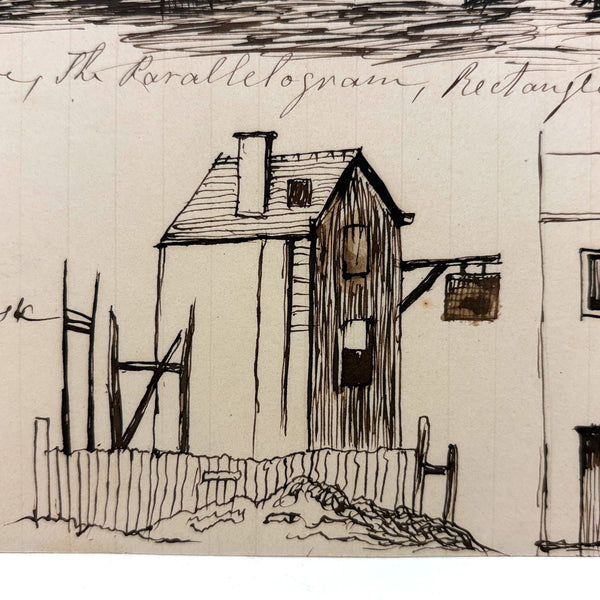 The Parallelogram, Rectangle